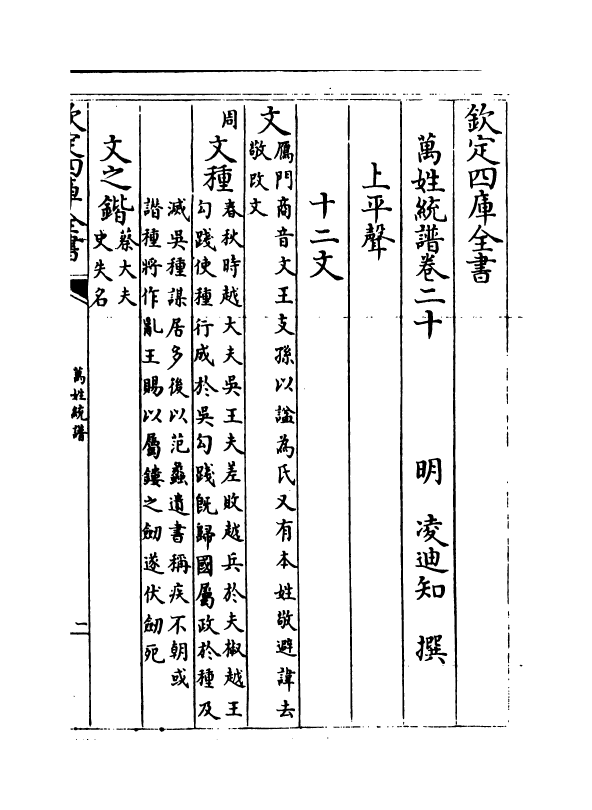 欽定四庫全書
萬姓統譜卷二十
明 凌迪知 撰
上平聲
十二文
文
鴈門商音文王支孫以諡為氏又有本姓敬避諱去
敬改文
周
文種
春秋時越大夫吳王夫差敗越兵於夫椒越王
勾踐使種行成於吳勾踐既歸國屬政於種及
滅吳種謀居多後以范蠡遺書稱疾不朝或
譖種將作亂王賜以屬鏤之劍遂伏劍死
文之鍇
蔡大夫
史失名
欽定四庫全書
萬姓統譜
二